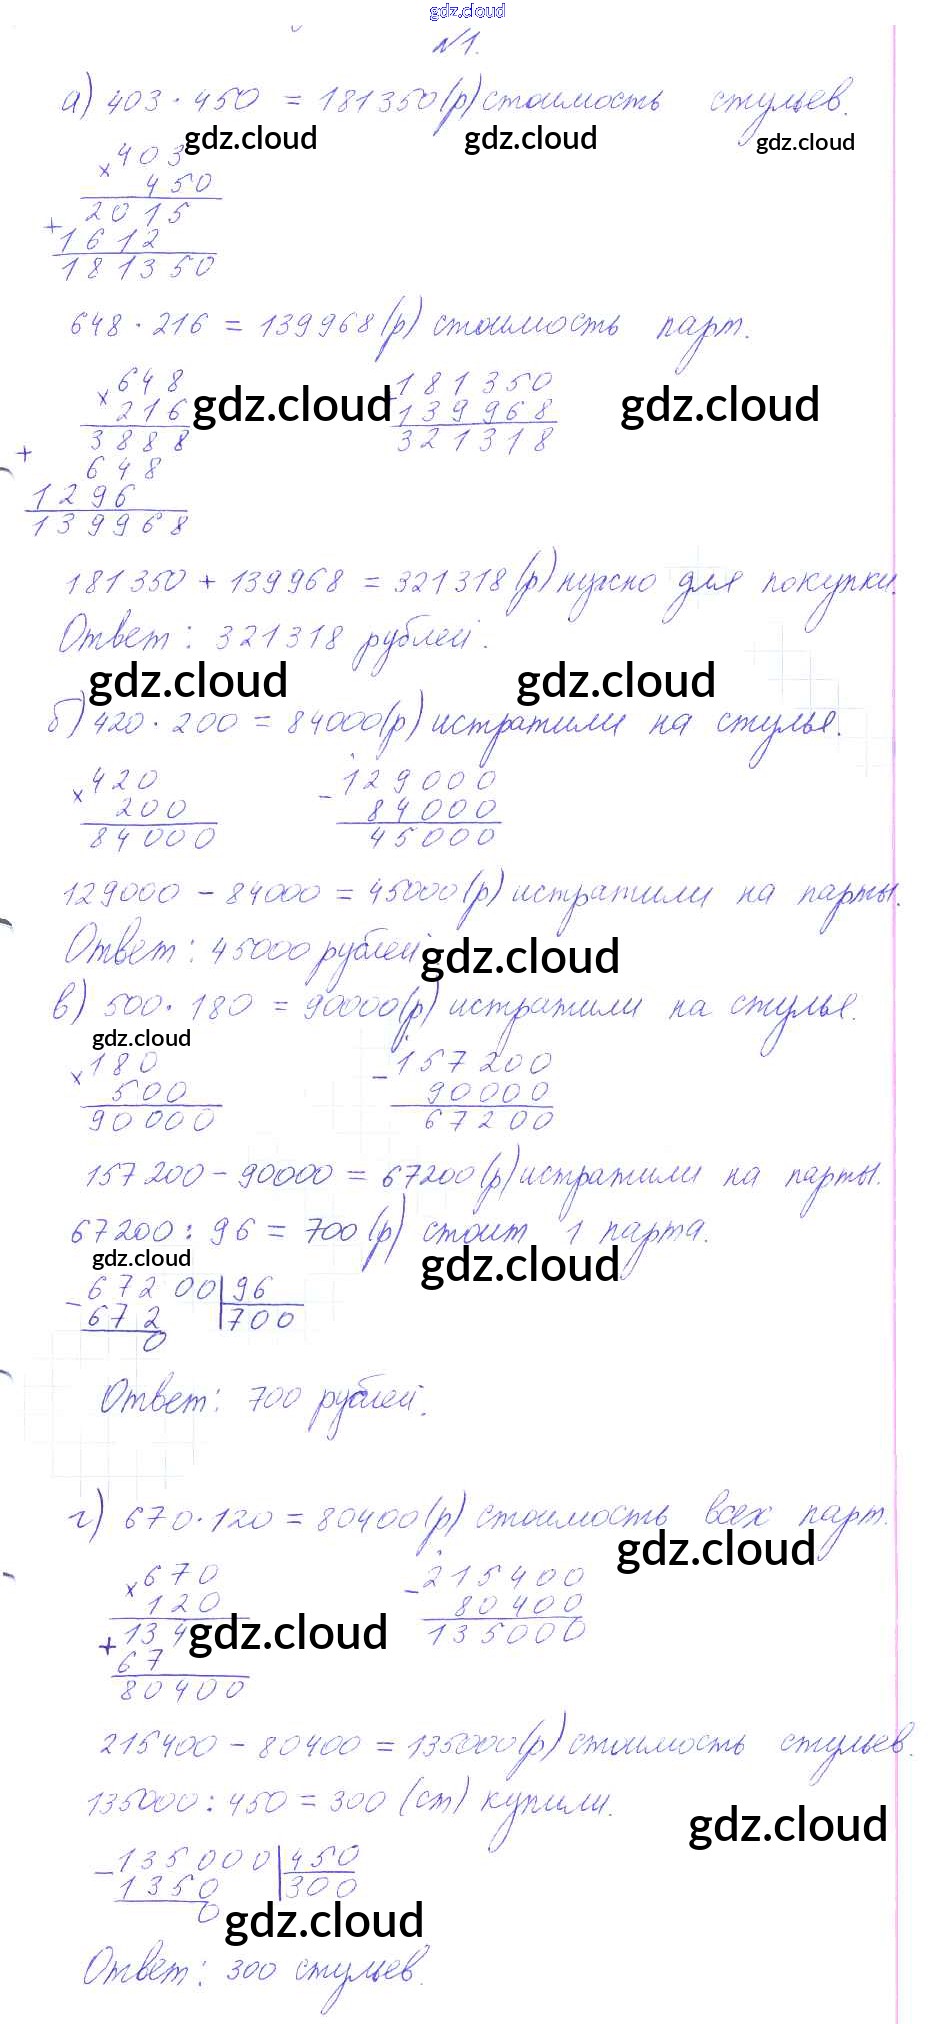 gdz.cloud
№1.
а) 403 · 450 = 181350 (р) стоимость стульев.
gdz.cloud gdz.cloud gdz.cloud
× 403
450
2015
+ 1612
181350
648 · 216 = 139968 (р) стоимость парт.
× 648
216
3888
+ 648
1296
139968
gdz.cloud gdz.cloud
181350
139968
321318
181350 + 139968 = 321318 (р) нужно для покупки.
Ответ: 321318 рублей.
gdz.cloud gdz.cloud
б) 420 · 200 = 84000 (р) истратили на стулья.
× 420
200
84000
- 129000
84000
45000
129000 - 84000 = 45000 (р) истратили на парты.
Ответ: 45000 рублей
gdz.cloud
в) 500 · 180 = 90000 (р) истратили на стулья.
gdz.cloud
× 180
500
90000
- 157200
90000
67200
157200 - 90000 = 67200 (р) истратили на парты.
67200 : 96 = 700 (р) стоит 1 парта.
gdz.cloud gdz.cloud
- 67200 | 96
672 | 700
0
Ответ: 700 рублей.
г) 670 · 120 = 80400 (р) стоимость всех парт.
gdz.cloud
× 670
120
+ 134
67
80400
gdz.cloud
- 215400
80400
135000
215400 - 80400 = 135000 (р) стоимость стульев.
135000 : 450 = 300 (ст) купили.
gdz.cloud
- 135000 | 450
1350 | 300
0
gdz.cloud
Ответ: 300 стульев.